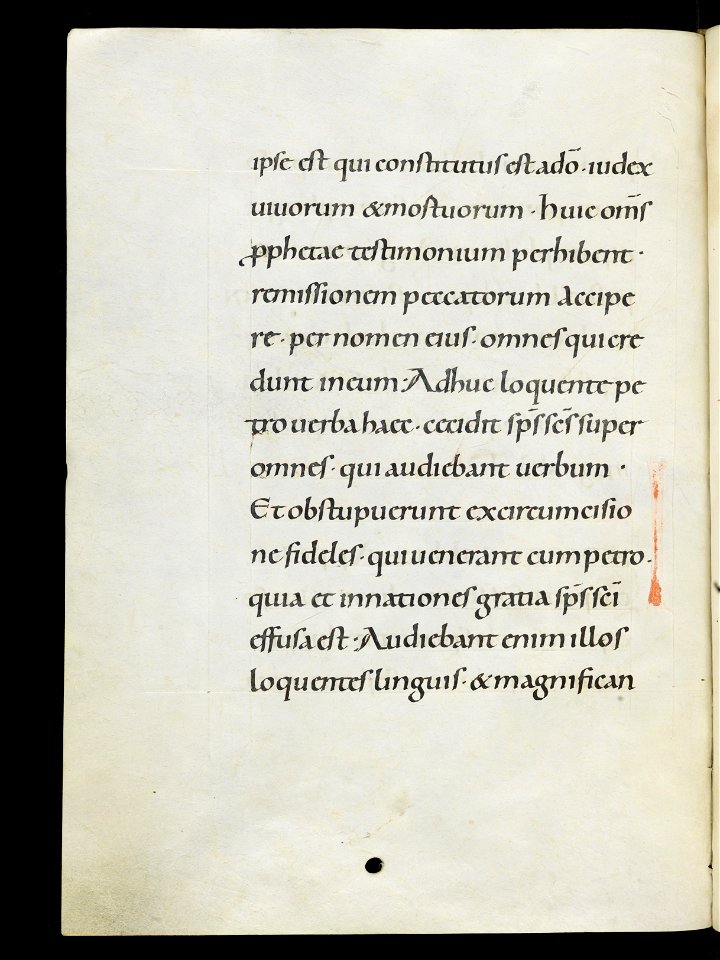 ipse est qui constitutus est ad̄o · iudex
uiuorum & mostuorum · huic om̄s
ꝓphetae testimonium perhibent ·
remissionem peccatorum accipe
re · per nomen eius · omnes qui cre
dunt in eum · Adhuc loquente pe
tro uerba haec · cecidit sp̄s sc̄s super
omnes · qui audiebant uerbum ·
Et obstupuerunt ex circumcisio
ne fideles · qui uenerant cum petro ·
quia et in nationes gratia sp̄s sc̄i
effusa est · Audiebant enim illos
loquentes linguis · & magnifican